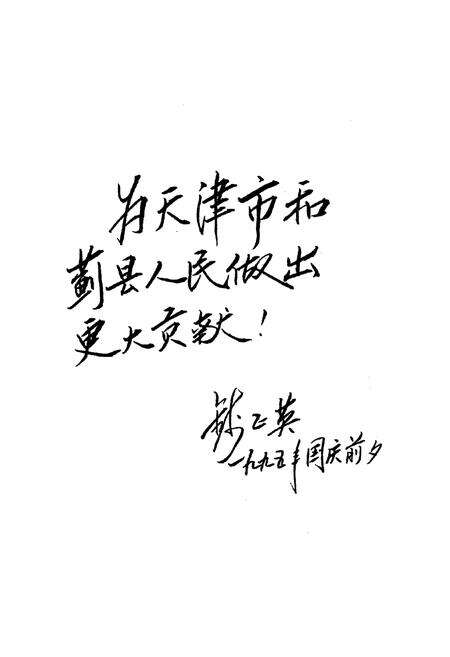 为天津市和
蓟县人民做出
更大贡献！
钱正英
一九九五年国庆前夕